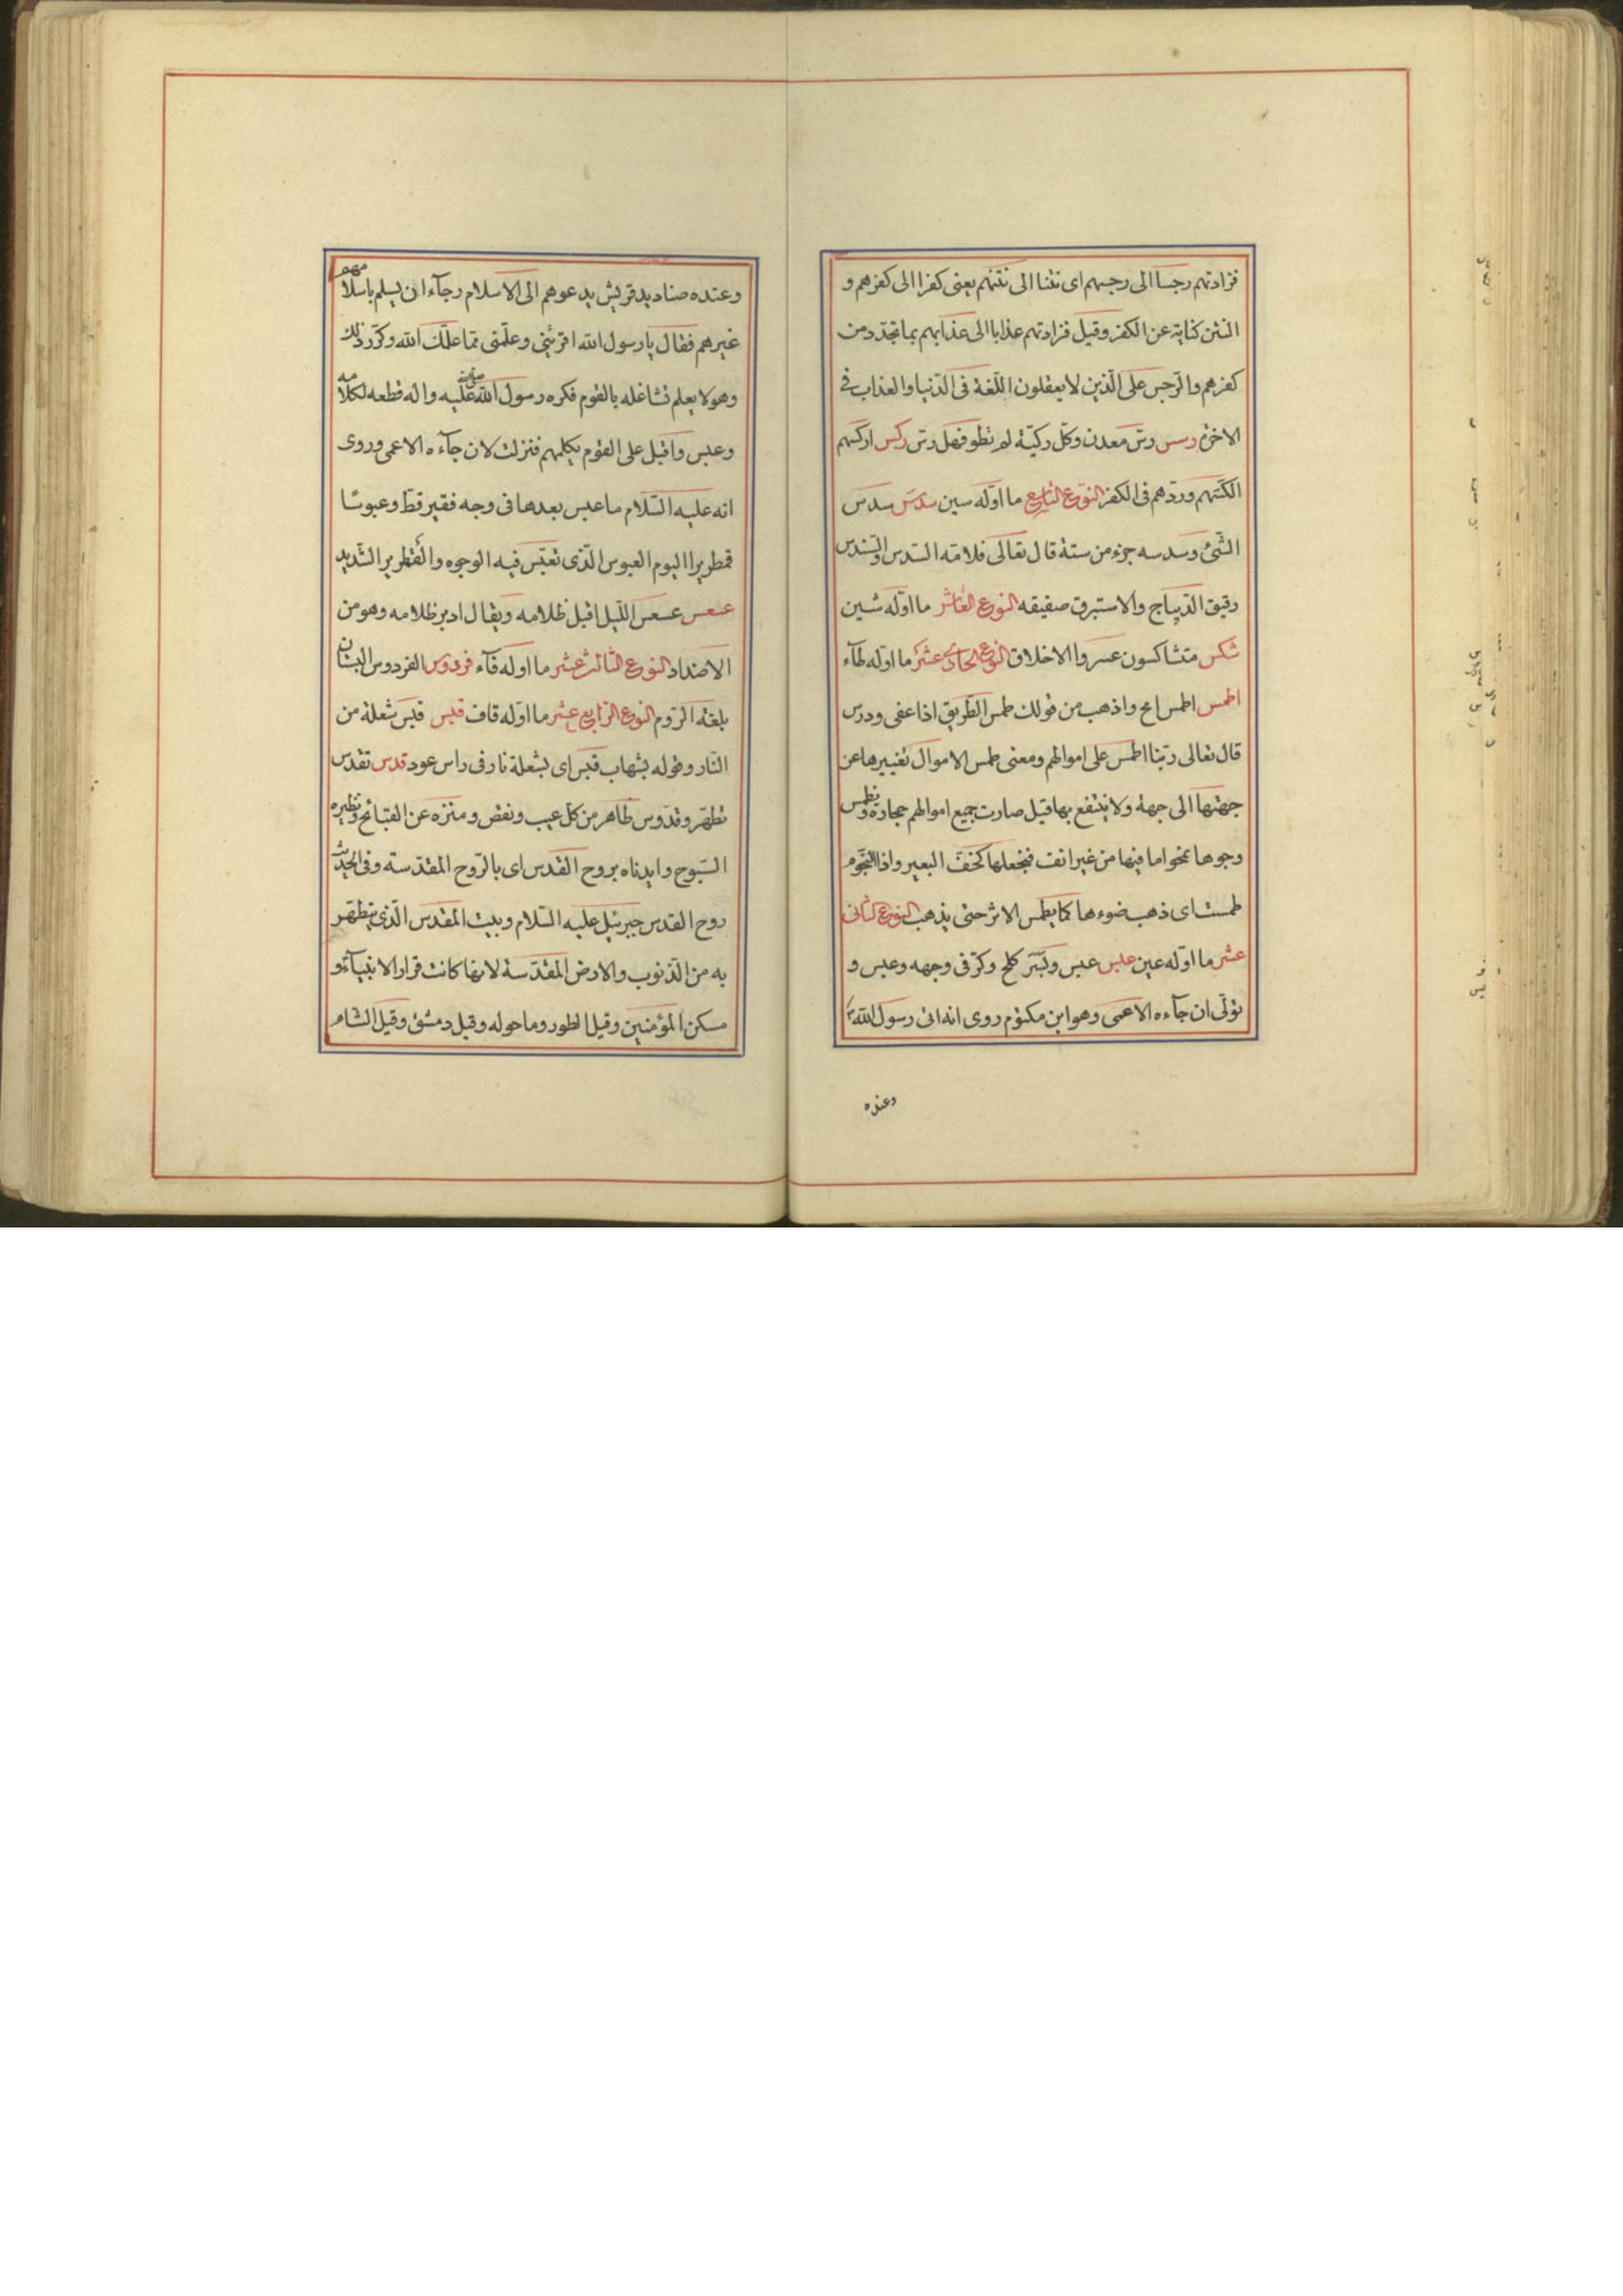 فزادتهم رجسا الى رجسهم اى نتنا الى نتنهم يعنى كفرا الى كفرهم و
النتن كناية عن الكفر وقيل فزادتهم عذابا الى عذابهم بما تجدد من
كفرهم والرجس على الّذين لا يعقلون اللّغة فى الدّنيا والعذاب فى
الاخرة رسس رسّ معدن وكلّ ركيّة لم تطو فهى رسّ ركس اركسهم
انكسهم وردّهم فى الكفر النّوع التاسع ما اوّله سين سدس سدس
الشّئ وسدسه جزء من ستة قال تعالى فلامّه السّدس والسّندس
رقيق الدّيباج والاستبرق صفيقه النوع العاشر ما اوّله شين
شكس متشاكسون عسروا الاخلاق النوع الحادى عشر ما اوّله طآء
اطمس اطمس امح واذهب من قولك طمس الطّريق اذا عفى ودرس
قال تعالى ربّنا اطمس على اموالهم ومعنى طمس الاموال تغييرها عن
جهتها الى جهة ولا ينتفع بها قيل صارت جميع اموالهم حجارة ونطمس
وجوها نمحوا ما فيها من غير انف فنجعلها كخفّ البعير واذا النّجوم
طمست اى ذهب ضوءها كما يطمس الاثر حتى يذهب النوع الثانى
عشر ما اوّله عين عبس عبس وبسّر كلح وكرّ فى وجهه وعبس و
تولّى ان جآءه الاعمى وهو ابن مكتوم روى انه اتى رسول الله
وعنده
وعنده صناديد قريش يدعوهم الى الاسلام رجآء ان يسلم باسلامهم
غيرهم فقال يا رسول الله اقرئنى وعلّمنى ممّا علّمك الله وكرّر ذلك
وهو لا يعلم تشاغله بالقوم فكره رسول الله صلى الله عليه واله قطعه لكلامه
وعبس واقبل على القوم يكلمهم فنزلت لان جآءه الاعمى وروى
انه عليه السّلام ما عبس بعدها فى وجه فقير قطّ وعبوسًا
قمطريرا اليوم العبوس الّذى تعبّس فيه الوجوه والقمطرير الشّديد
عسعس عسعس اللّيل اقبل ظلامه ويقال ادبر ظلامه وهو من
الاضداد النوع الثالث عشر ما اوله فآء فردوس الفردوس البستان
بلغة الرّوم النوع الرّابع عشر ما اوّله قاف قبس قبس شعلة من
النّار وقوله بشهاب قبس اى بشعلة نار فى راس عود قدس تقدّس
تطهّر وقدّوس طاهر من كلّ عيب ونقص ومنزه عن القبائح ونظيره
السّبوح وايدناه بروح القدس اى بالرّوح المقدّسة وفى الحديث
روح القدس جبرئيل عليه السّلام وبيت المقدس الّذى يتطهّر
به من الذّنوب والارض المقدّسة لانها كانت قرار الانبيآء و
مسكن المؤمنين وقيل الطور وما حوله وقيل دمشق وقيل الشام